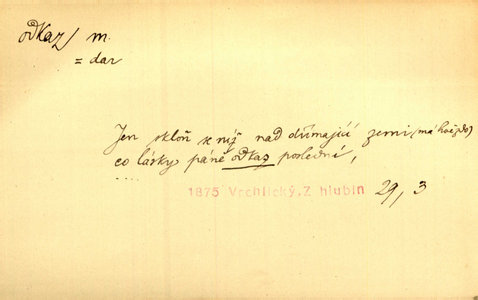 odkaz, m.
= dar
Jen skloň se níž nad dřímající zemi (má hvězdo)
co lásky páně odkaz poslední,
.....
1875 Vrchlický, Z hlubin 29, 3